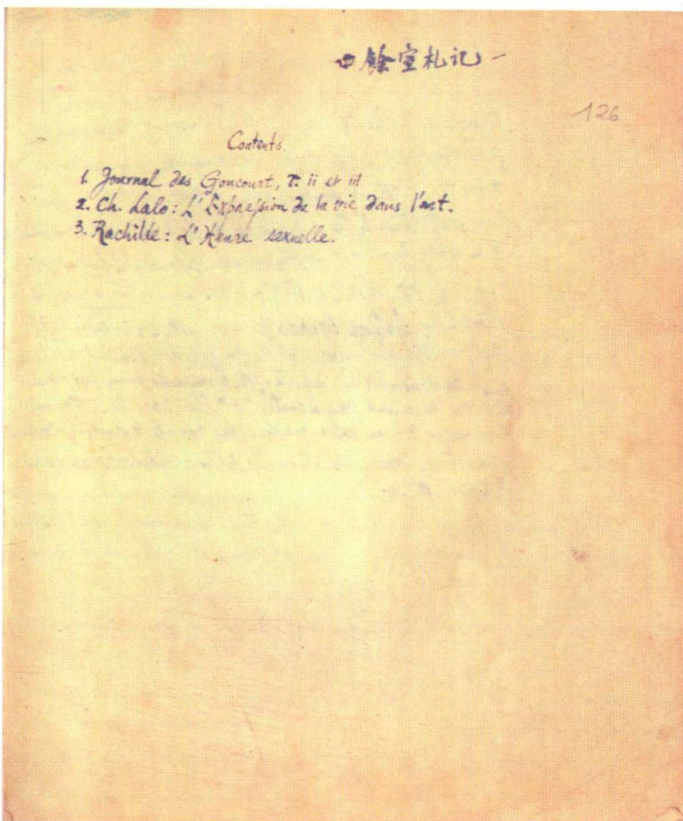 餘室札记 一
126
Contents.
1. Journal des Goncourt, T. ii et iii
2. Ch. Lalo: L'Expression de la vie dans l'art.
3. Rachilde: L'Heure sexuelle.